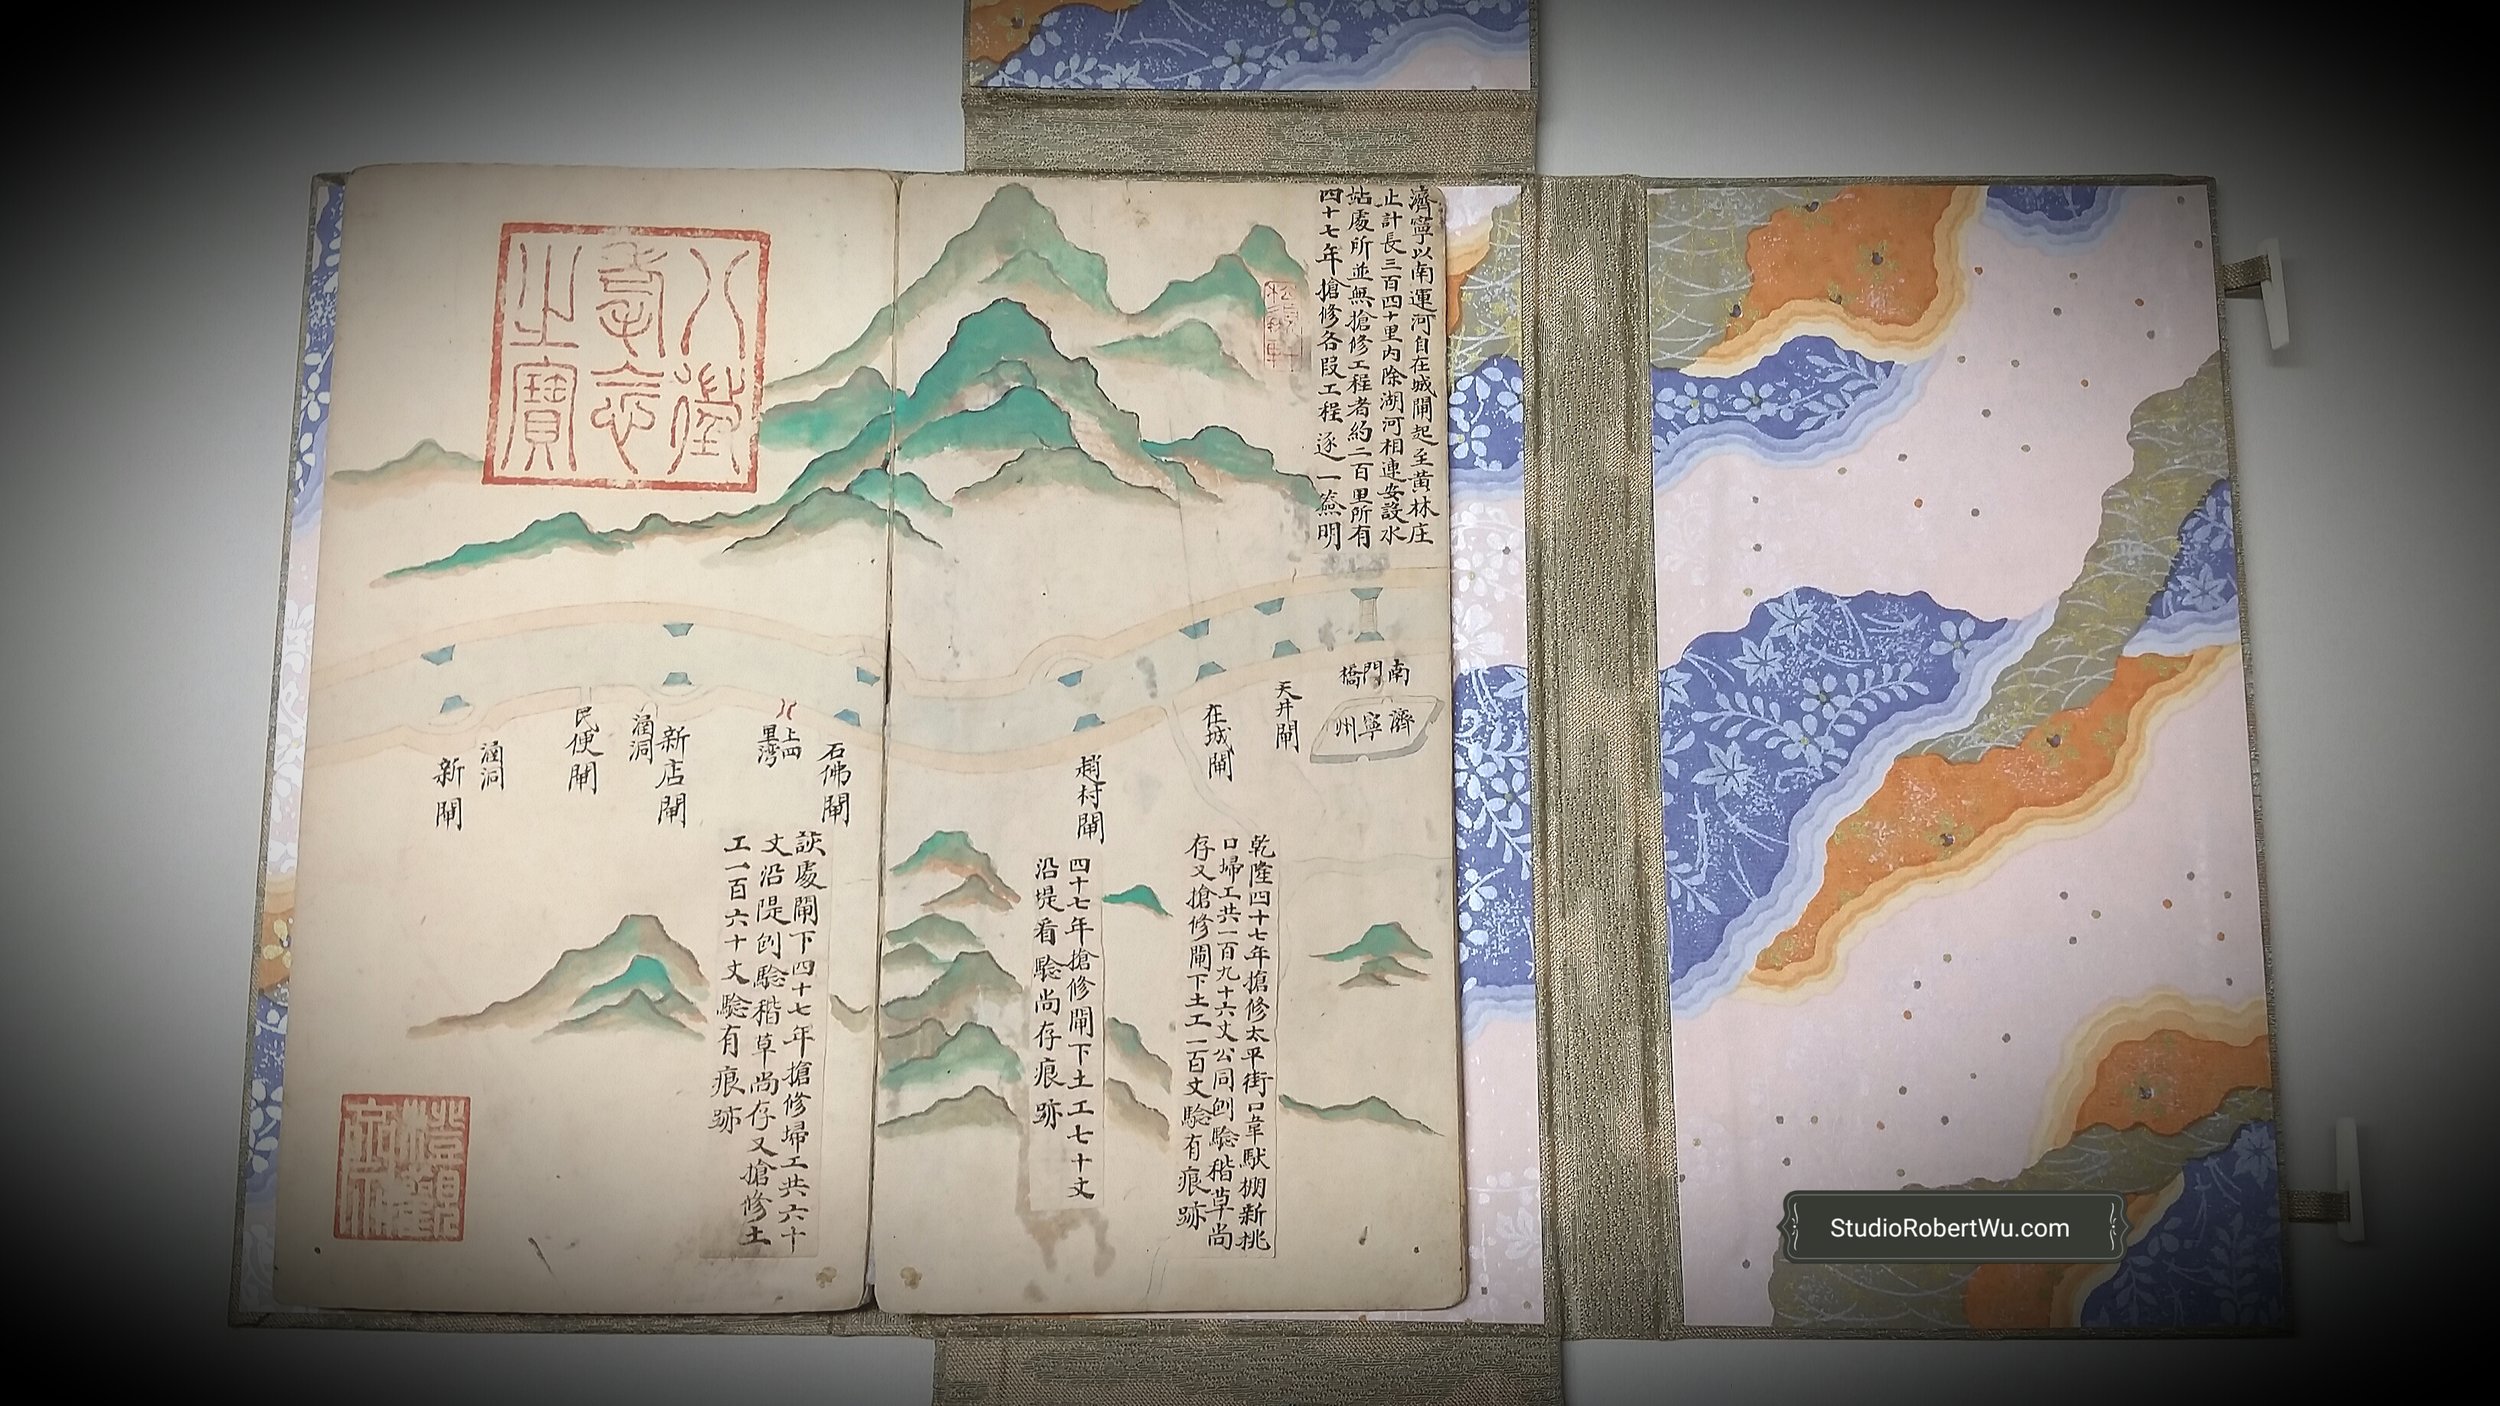 濟寧以南運河自在城閘起至黃林庄
止計長三百四十里內除湖河相連安設水
站處所並無搶修工程者約二百里所有
四十七年搶修各段工程逐一簽明
南門橋
濟寧州
天井閘
在城閘
乾隆四十七年搶修太平街口韋馱棚新挑
口埽工共一百九十六丈公同刨驗稭草尚
存又搶修閘下土工一百丈驗有痕跡
趙村閘
四十七年搶修閘下土工七十丈
沿堤看驗尚存痕跡
石佛閘
上四
里灣
新店閘
涵洞
民便閘
涵洞
新閘
該處閘下四十七年搶修埽工共六十
丈沿隄刨驗稭草尚存又搶修土
工一百六十丈驗有痕跡
八徵
耄念
之寶
StudioRobertWu.com